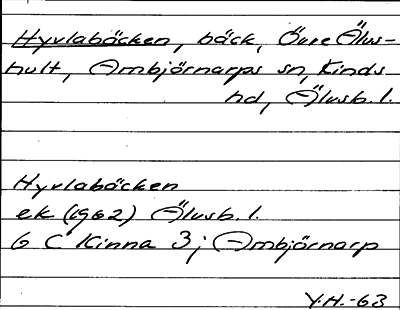 Hyvlabäcken, bäck, Övre Älus-
hult, Ambjörnarps sn, Kinds
hd, Älvsb. l.
Hyvlabäcken
ek (1962) Älvsb. l.
6 C Kinna 3; Ambjörnarp
Y.H.-63